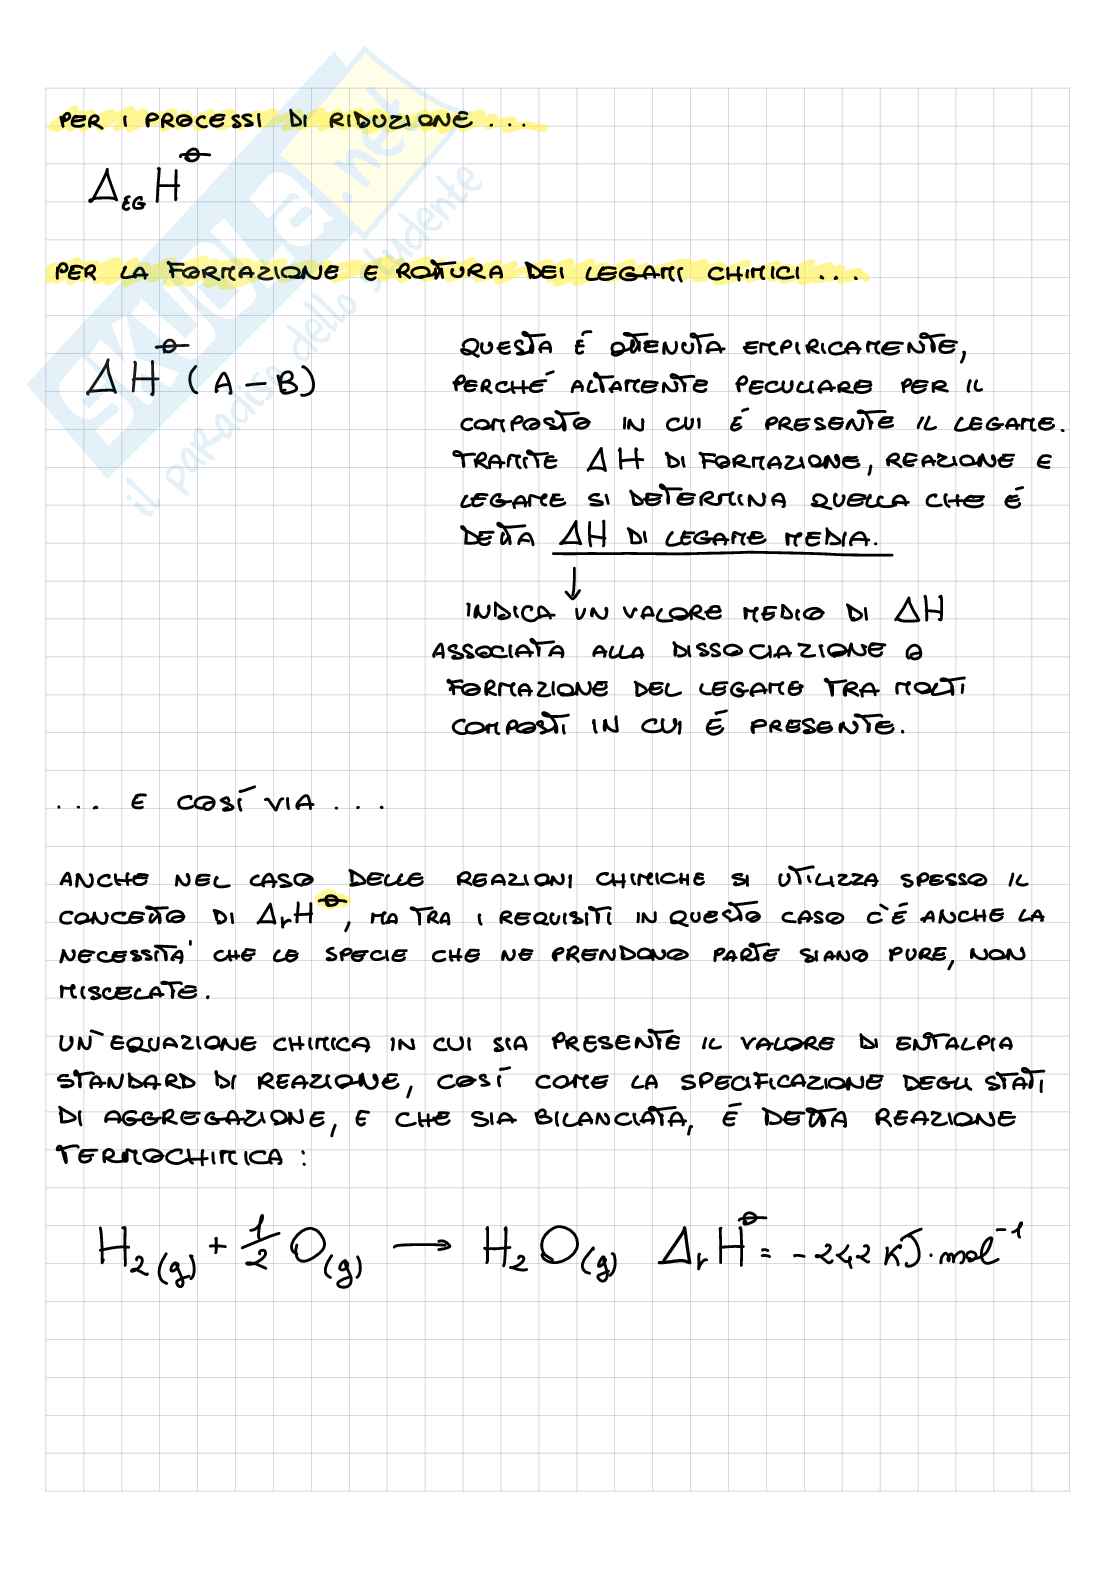 PER I PROCESSI DI RIDUZIONE ...
Δ_EG H^⦵
PER LA FORMAZIONE E ROTTURA DEI LEGAMI CHIMICI ...
ΔH^⦵ (A-B)
QUESTA É OTTENUTA EMPIRICAMENTE,
PERCHÉ ALTAMENTE PECULIARE PER IL
COMPOSTO IN CUI É PRESENTE IL LEGAME.
TRAMITE ΔH DI FORMAZIONE, REAZIONE E
LEGAME SI DETERMINA QUELLA CHE É
DETTA ΔH DI LEGAME MEDIA.
↓
INDICA UN VALORE MEDIO DI ΔH
ASSOCIATA ALLA DISSOCIAZIONE O
FORMAZIONE DEL LEGAME TRA MOLTI
COMPOSTI IN CUI É PRESENTE.
... E COSÍ VIA ...
ANCHE NEL CASO DELLE REAZIONI CHIMICHE SI UTILIZZA SPESSO IL
CONCETTO DI Δ_rH^⦵, MA TRA I REQUISITI IN QUESTO CASO C'É ANCHE LA
NECESSITA' CHE LE SPECIE CHE NE PRENDONO PARTE SIANO PURE, NON
MISCELATE.
UN'EQUAZIONE CHIMICA IN CUI SIA PRESENTE IL VALORE DI ENTALPIA
STANDARD DI REAZIONE, COSÍ COME LA SPECIFICAZIONE DEGLI STATI
DI AGGREGAZIONE, E CHE SIA BILANCIATA, É DETTA REAZIONE
TERMOCHIMICA:
H₂(g) + 1/2 O(g) → H₂O(g) Δ_rH^⦵ = -242 KJ·mol⁻¹
SKUOLA.net
il paradiso dello studente